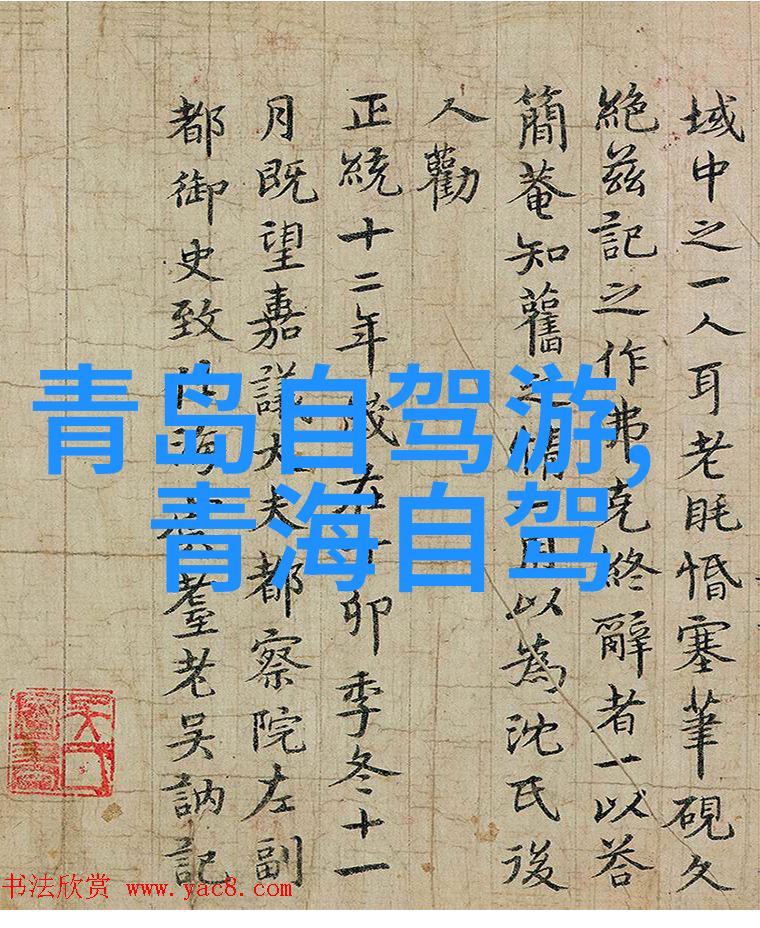 域中之一人耳老眊惛塞筆硯久
絶茲記之作弗克終辭者一以荅
簡菴知舊之情一用以為沈氏後
人勸
正統十二年歲在丁卯季冬十一
月既望嘉議大夫都察院左副
都御史致仕海虞耋老吳訥記
青岛自驾游,
青海自驾
书法欣赏 www.yac8.com